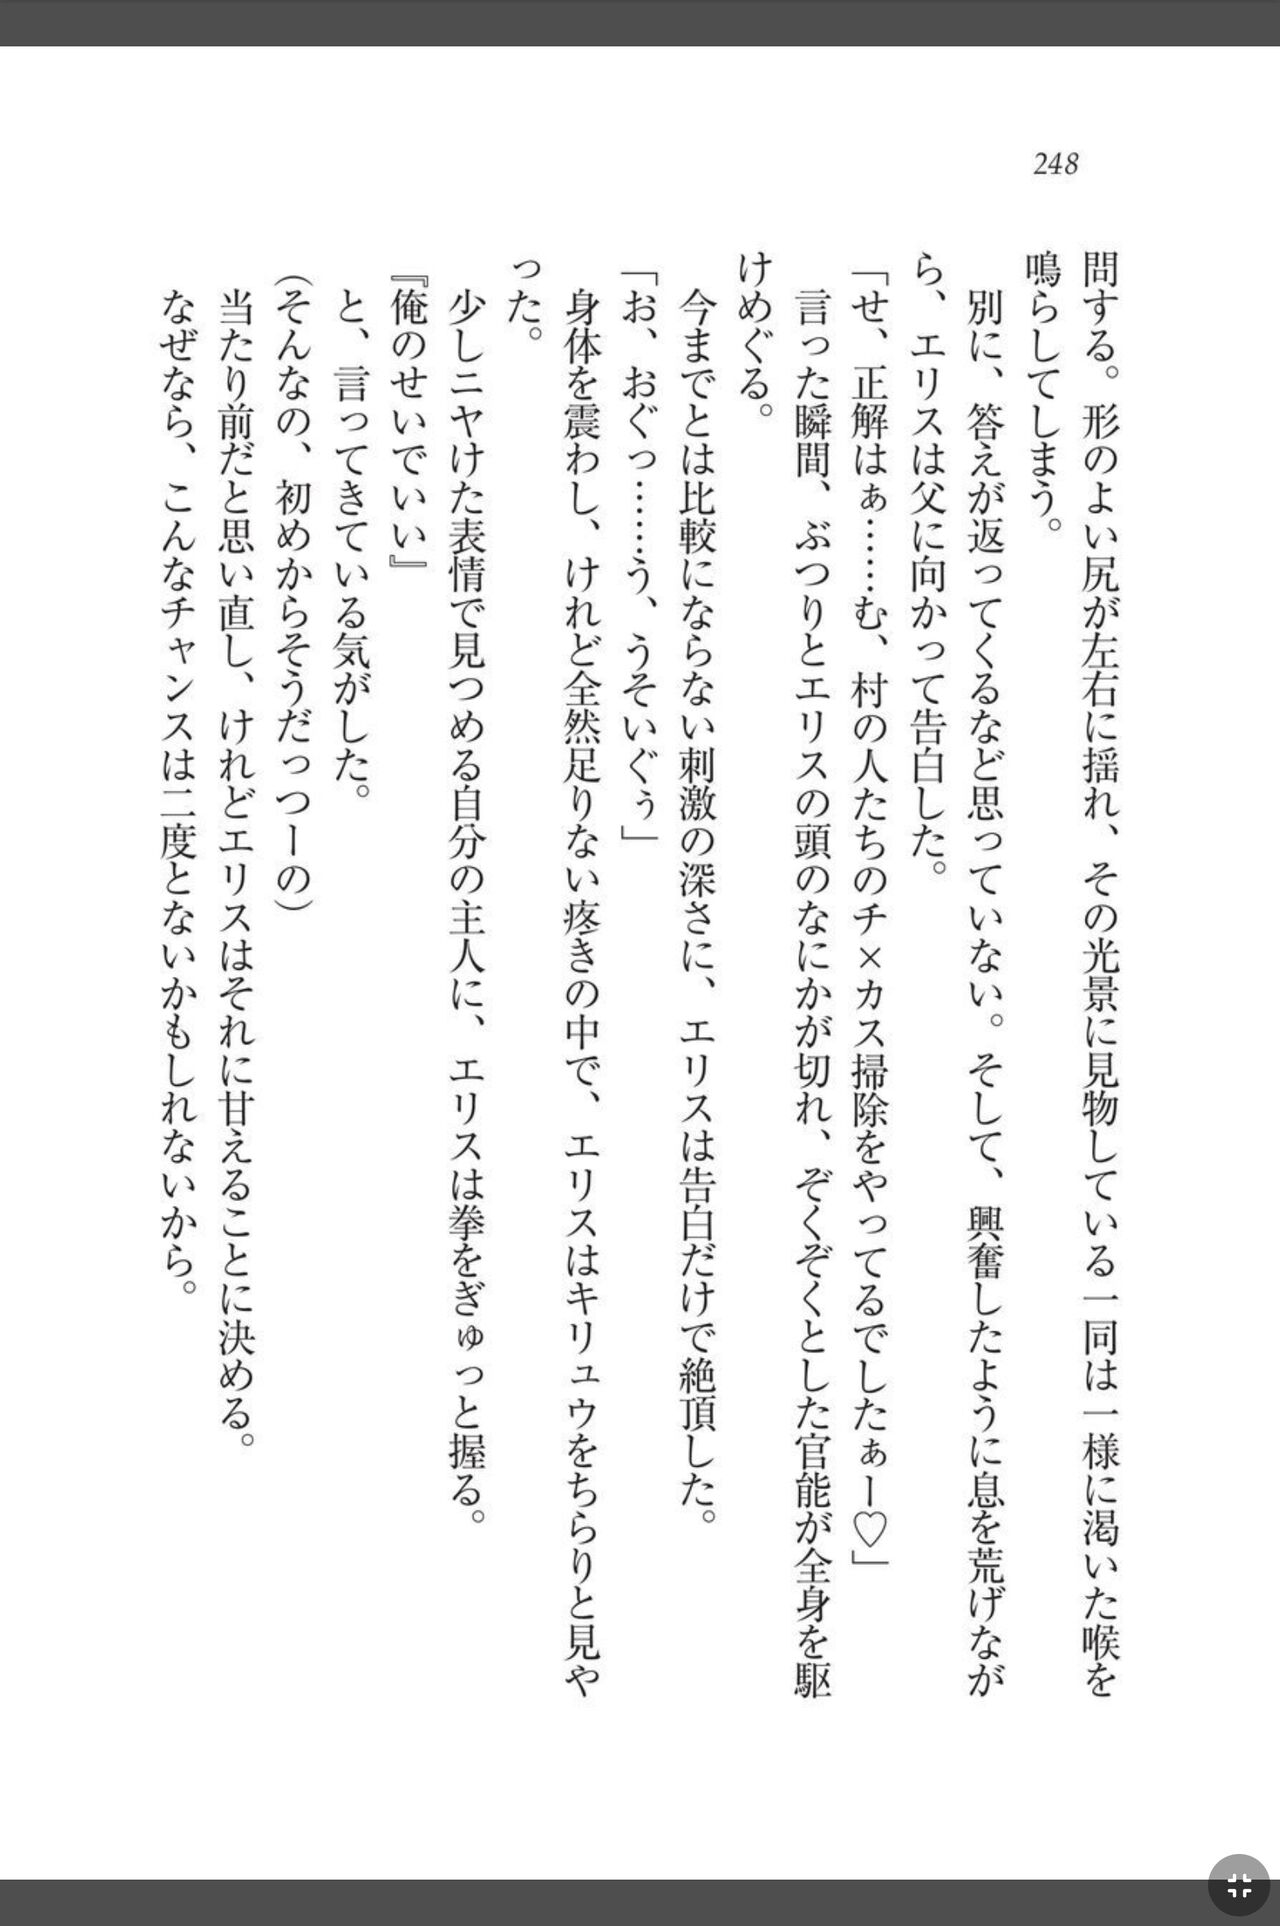 248
問する。形のよい尻が左右に揺れ、その光景に見物している一同は一様に渇いた喉を
鳴らしてしまう。
別に、答えが返ってくるなど思っていない。そして、興奮したように息を荒げなが
ら、エリスは父に向かって告白した。
「せ、正解はぁ……む、村の人たちのチ×カス掃除をやってるでしたぁー♡」
言った瞬間、ぶつりとエリスの頭のなにかが切れ、ぞくぞくとした官能が全身を駆
けめぐる。
今までとは比較にならない刺激の深さに、エリスは告白だけで絶頂した。
「お、おぐっ……う、うそいぐぅ」
身体を震わし、けれど全然足りない疼きの中で、エリスはキリュウをちらりと見や
った。
少しニヤけた表情で見つめる自分の主人に、エリスは拳をぎゅっと握る。
『俺のせいでいい』
と、言ってきている気がした。
（そんなの、初めからそうだっつーの）
当たり前だと思い直し、けれどエリスはそれに甘えることに決める。
なぜなら、こんなチャンスは二度とないかもしれないから。